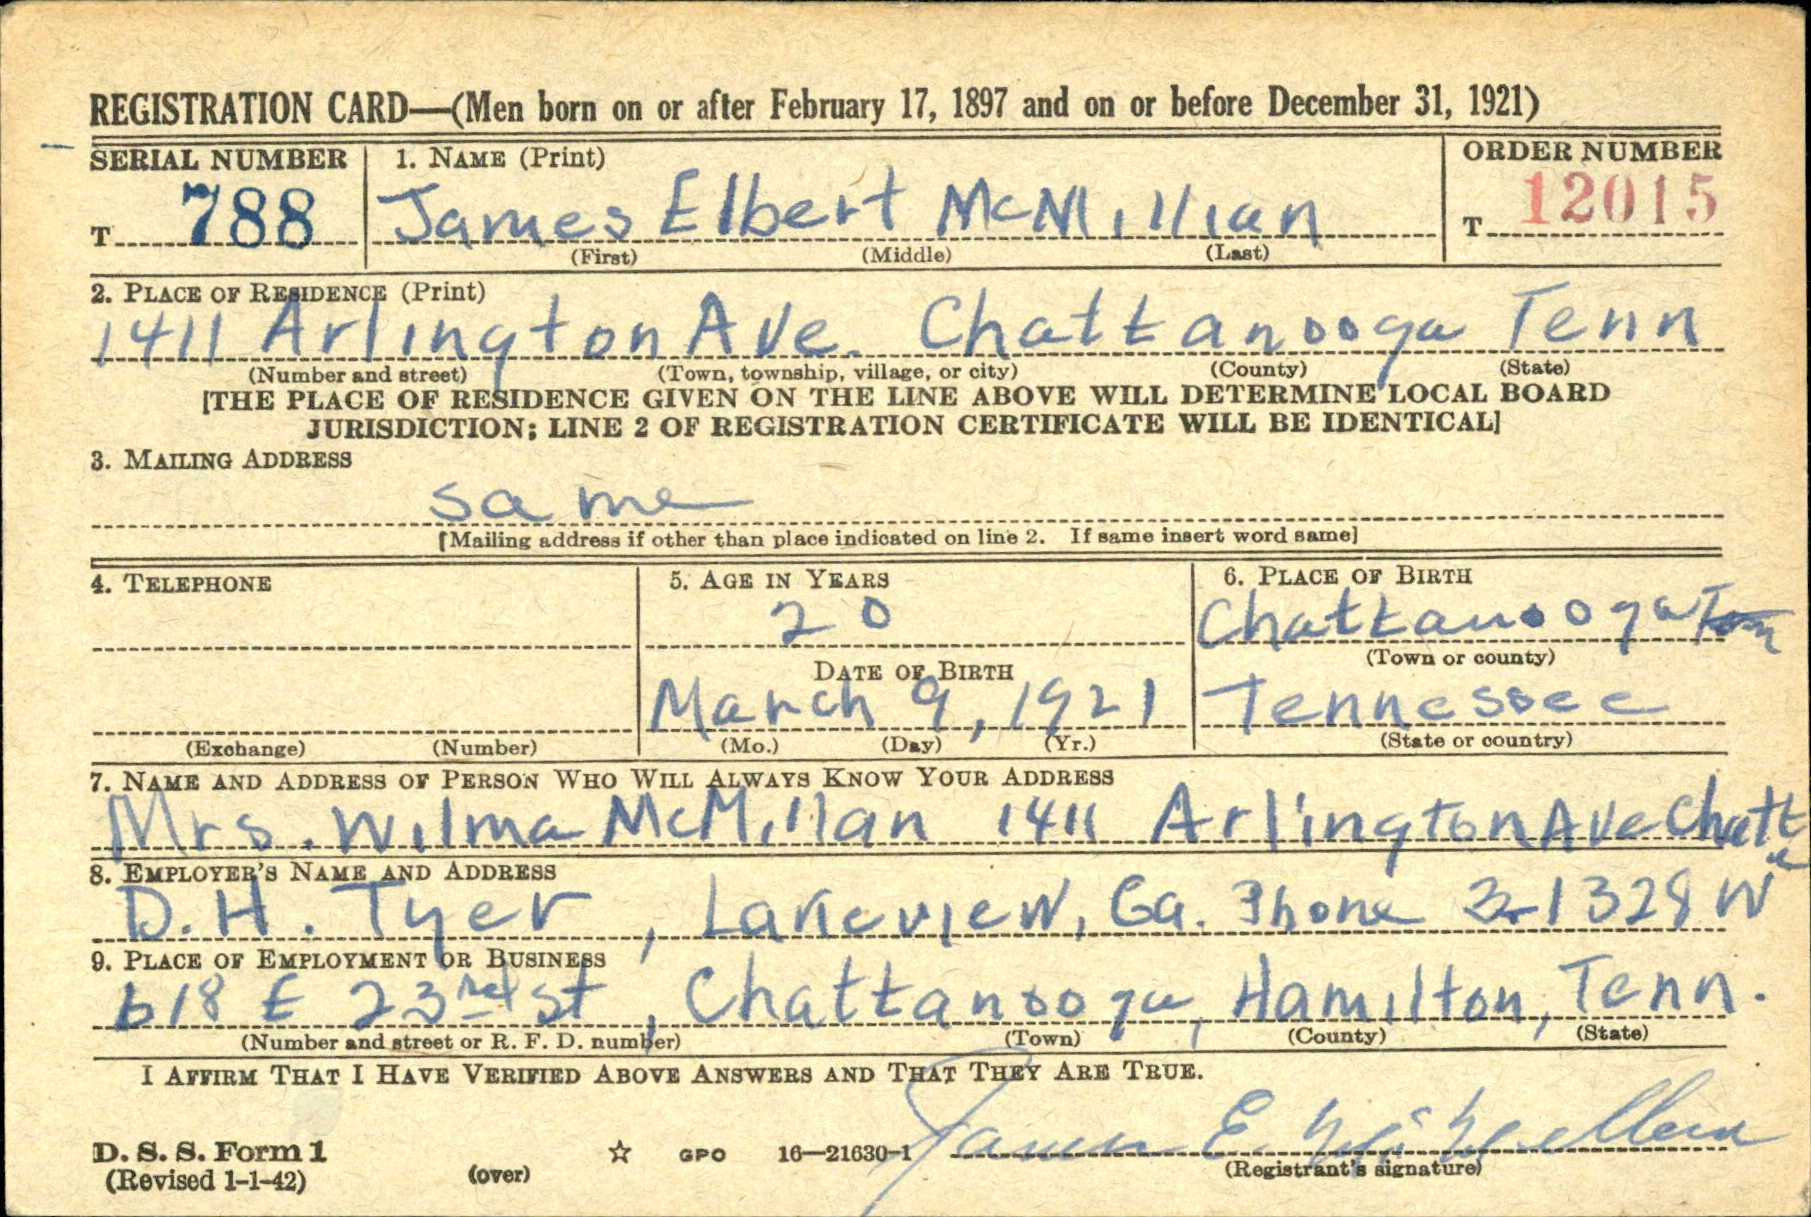 REGISTRATION CARD—(Men born on or after February 17, 1897 and on or before December 31, 1921)
SERIAL NUMBER 1. NAME (Print) ORDER NUMBER
T 788 James Elbert McMillian T 12015
(First) (Middle) (Last)
2. PLACE OF RESIDENCE (Print)
1411 Arlington Ave. Chattanooga Tenn
(Number and street) (Town, township, village, or city) (County) (State)
[THE PLACE OF RESIDENCE GIVEN ON THE LINE ABOVE WILL DETERMINE LOCAL BOARD
JURISDICTION; LINE 2 OF REGISTRATION CERTIFICATE WILL BE IDENTICAL]
3. MAILING ADDRESS
same
[Mailing address if other than place indicated on line 2. If same insert word same]
4. TELEPHONE 5. AGE IN YEARS 6. PLACE OF BIRTH
20 Chattanooga Tenn
DATE OF BIRTH (Town or county)
March 9, 1921 Tennessee
(Exchange) (Number) (Mo.) (Day) (Yr.) (State or country)
7. NAME AND ADDRESS OF PERSON WHO WILL ALWAYS KNOW YOUR ADDRESS
Mrs. Wilma McMillan 1411 Arlington Ave Chatt
8. EMPLOYER'S NAME AND ADDRESS
D. H. Tyer, Lakeview, Ga. Phone 3-1328 W
9. PLACE OF EMPLOYMENT OR BUSINESS
618 E 23rd St, Chattanooga, Hamilton, Tenn.
(Number and street or R. F. D. number) (Town) (County) (State)
I AFFIRM THAT I HAVE VERIFIED ABOVE ANSWERS AND THAT THEY ARE TRUE.
James E. McMillan
D. S. S. Form 1 GPO 16—21630-1
(Revised 1-1-42) (over) (Registrant's signature)